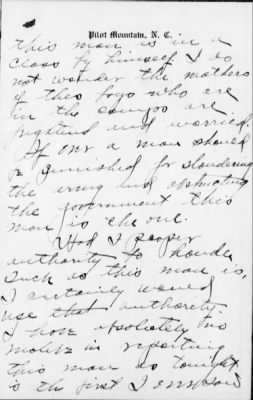 Pilot Mountain, N. C.
this man is in a
class by himself, I do
not wonder the mothers
of theo boys who are
in the camps are
frightend and worried.
If ever a man should
be punished for slandering
the army and obstructing
the government this
man is the one.
Had I proper
authority to handle
such as this man is,
I certainly would
use that authority.
I have absolutely no
motive in reporting
this man as tonight
is the first I ever saw